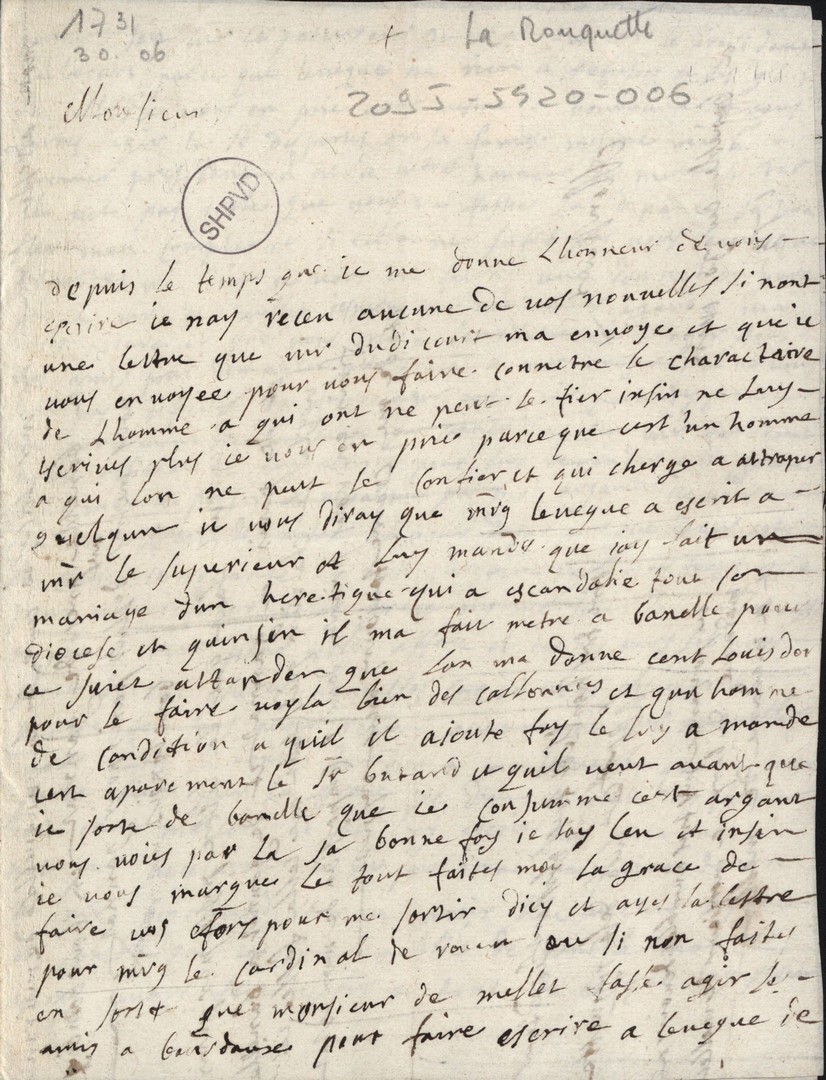 1731
30. 06
+
La Rouquette
2095-5920-006
Monsieur
SHPVD
depuis le temps que ie me donne Lhonneur de vous
escrire ie nay receu aucune de vos nouvelles si nont
une lettre que mr dudicourt ma envoye et que ie
vous envoyee pour vous faire connetre le charactaire
de Lhomme a qui ont ne peut le fier insin ne Luy
escrives plus ie vous en prie parceque cest un homme
a qui lon ne peut le confier et qui cherge a attraper
quelqun ie vous diray que mrg leveque a escrit a
mr le superieur et Luy mande que iay fait un
mariage dun heretique qui a escandalie tout son
diocese et quinsin il ma fait metre a banelle pour
ce suiet attander que lon ma donne cent Louis dor
pour le faire voyla bien des callonnies et qun homme
de condition a quil il ajoute foy le luy a mande
cest aparement le sr butard et quil veut avant que
ie sorte de banelle que ie consumme cest argant
vous voies par la sa bonne foy ie lay leu et insin
ie vous marque le tout faites moy la grace de
faire vos efors pour me sortir dicy et ayes la lettre
pour mrg le cardinal de rouen ou si non faites
en sorte que monsieur de mellet fasse agir se
amis a bourdaux pour faire escrire a leveque de